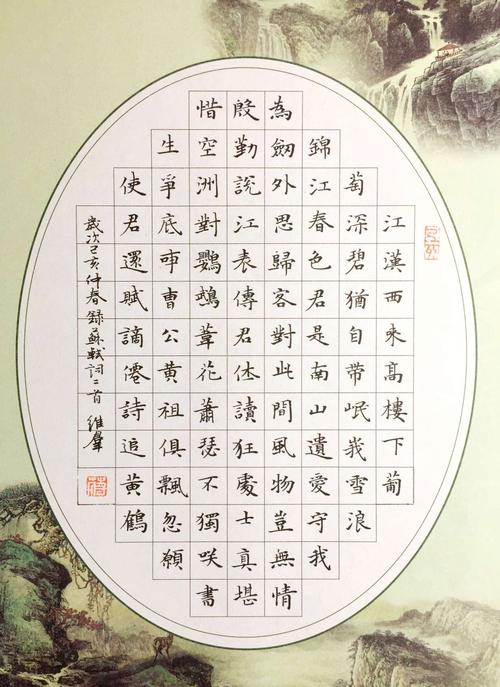 江漢西來高樓下葡
萄深碧猶自帶岷我雪浪
錦江春色君是南山遺愛守我
為劒外思歸客對此間風物豈無情
殷勤說江表傳君休讀狂處士真堪
惜空洲對鸚鵡葦花蕭瑟不獨咲書
生爭底事曹公黃祖俱飄忽願
使君還賦謫僊詩追黃鶴
歲次己亥仲春録蘇軾詞二首 維羣